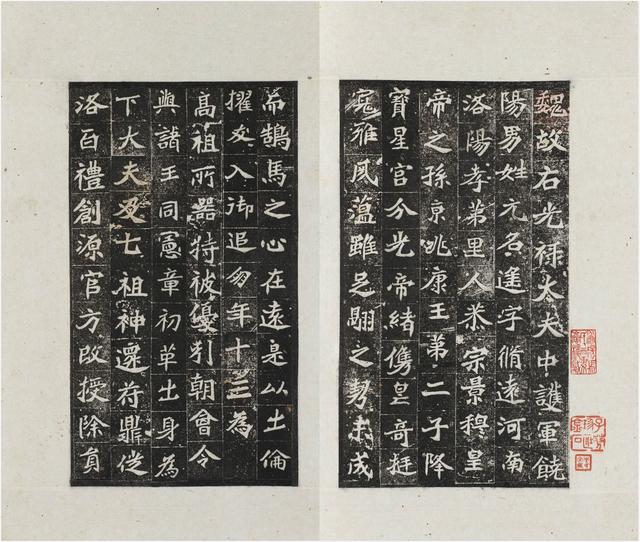 魏故右光禄大夫中護軍饒
陽男姓元名遙字脩遠河南
洛陽孝弟里人恭宗景穆皇
帝之孫京兆康王第二子降
寶星宮分光帝緒儁皇奇挺
寬雅夙蘊雖足翾之勢未成
而鵠馬之心在遠是以出倫
擢入御追年十三為
高祖所器特被優引朝會令
與諸王同憲章初革出身為
下大夫及七祖神遷苻鼎從
洛百禮創源官方改授除員